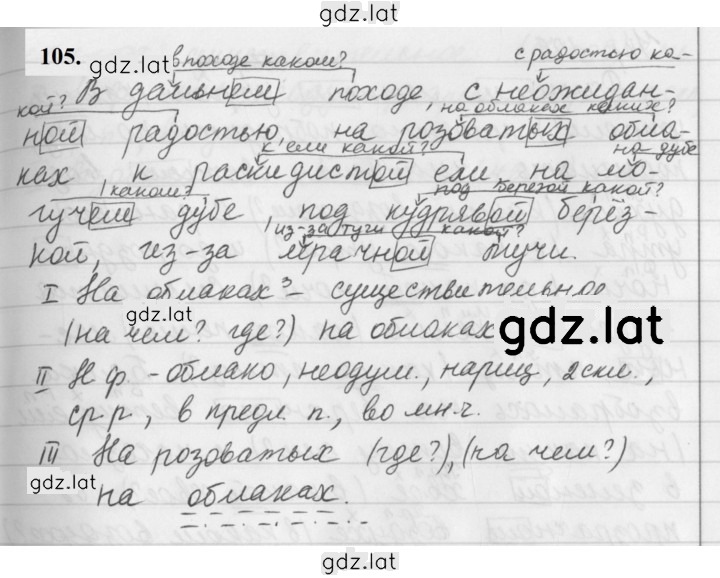 gdz.lat
105.
gdz.lat
в походе каком? с радостью ка-
кой? В дальнем походе, с неожидан-
на облаках каких?
ной радостью, на розоватых обла-
к ели какой? на дубе
ках к раскидистой ели, на мо-
каком? под берёзой какой?
гучем дубе, под кудрявой берёз-
из-за тучи какой?
кой, из-за мрачной тучи.
I На облаках³ – существительное
(на чем? где?) на облаках
gdz.lat
II Н.ф. – облако, неодуш., нариц, 2 скл.,
ср.р., в предл. п., во мн.ч.
III На розоватых (где?), (на чем?)
gdz.lat
на облаках.
gdz.lat